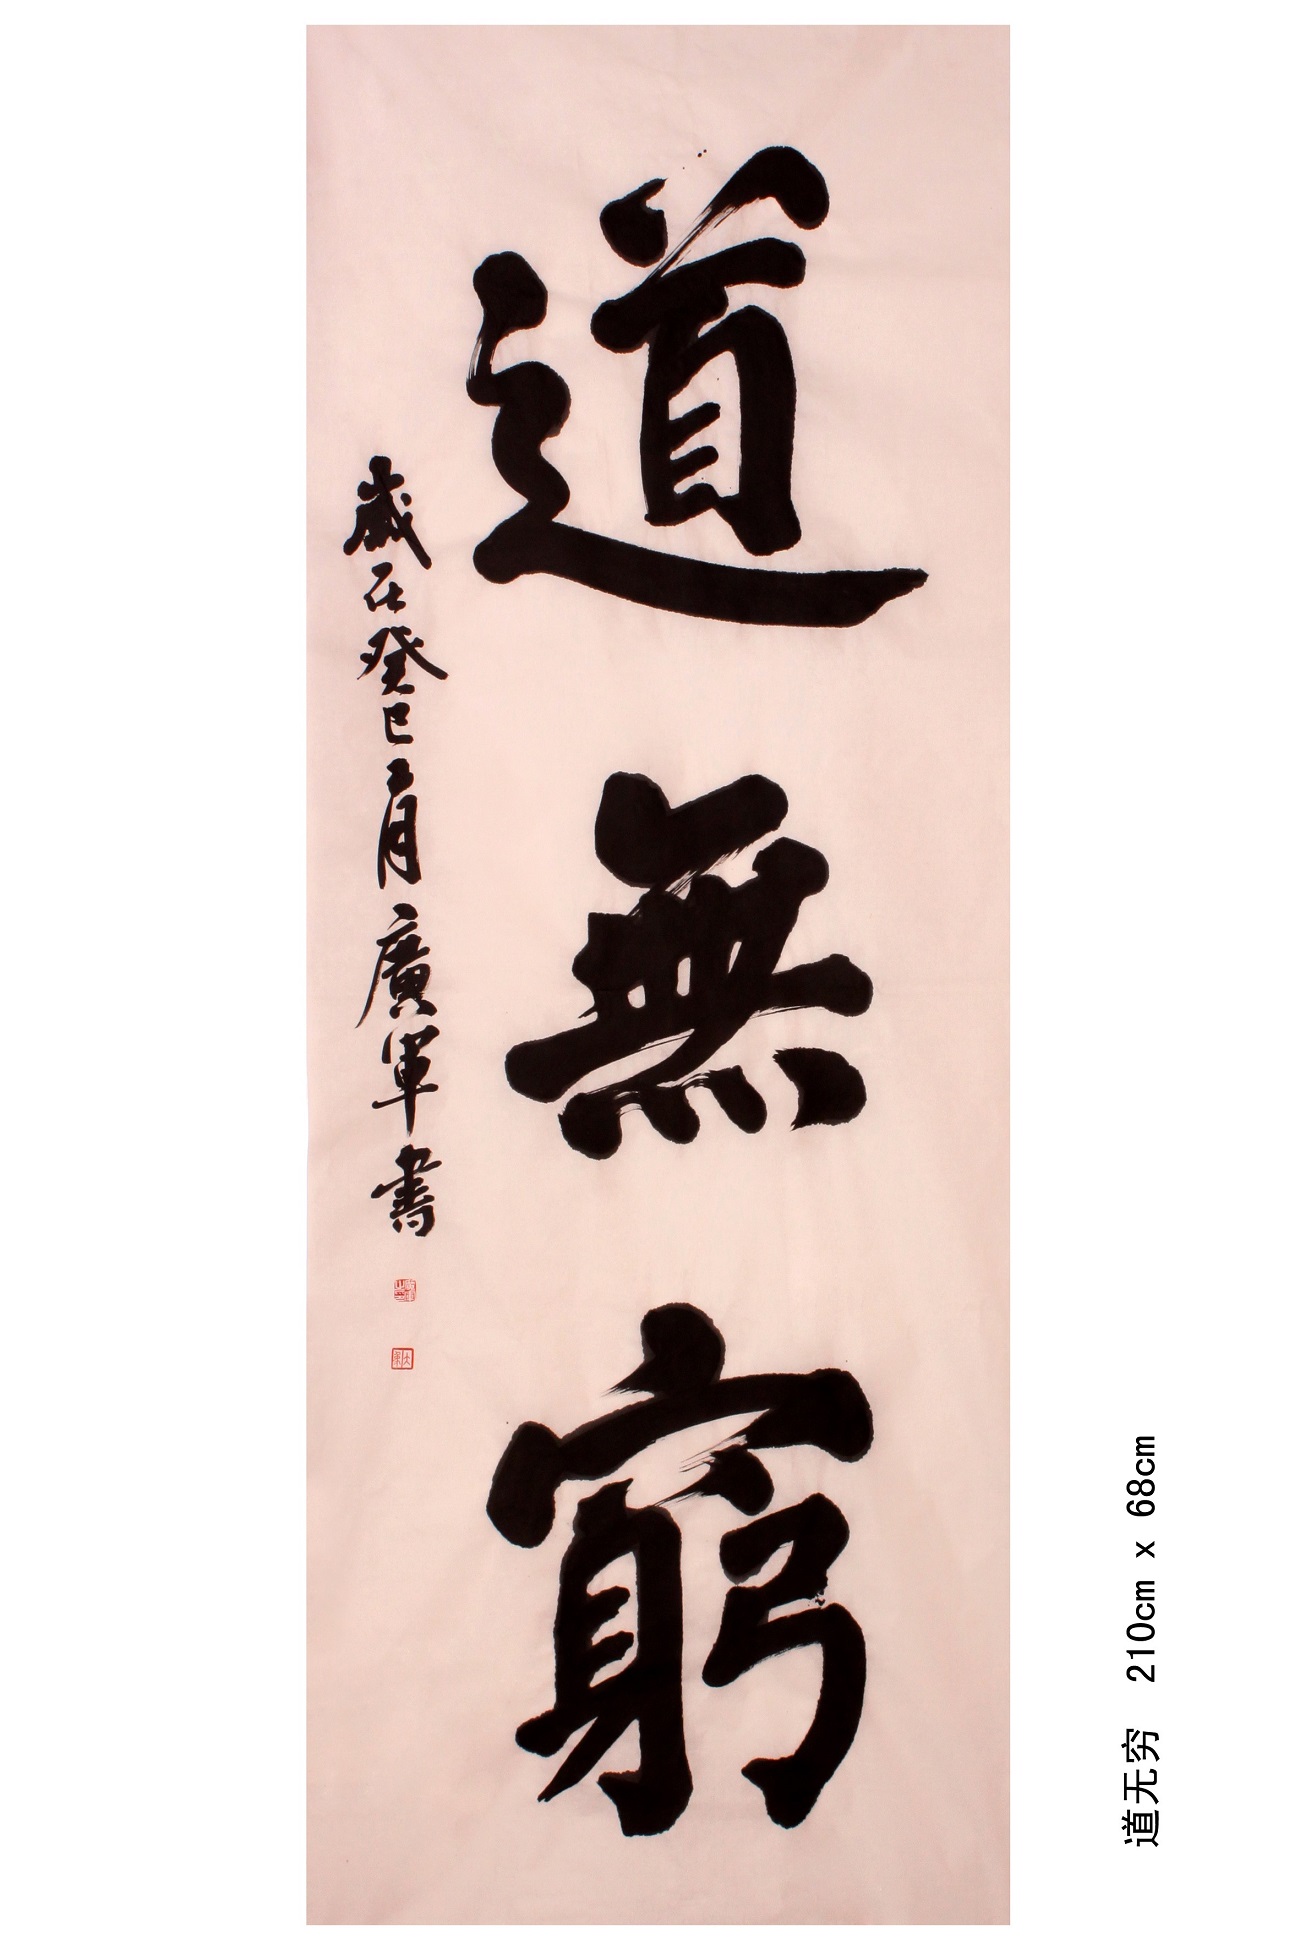 道無窮
歲在癸巳二月廣軍書
道无穷 210cm x 68cm